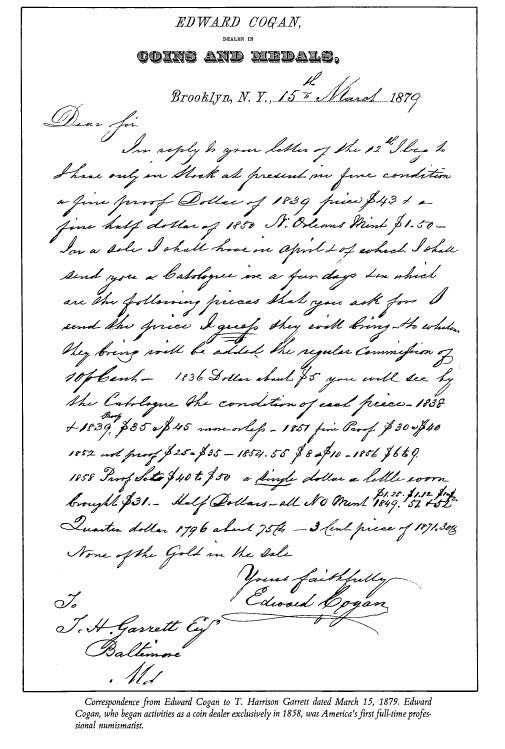 EDWARD COGAN,
DEALER IN
COINS AND MEDALS,
Brooklyn, N. Y., 15th March 1879
Dear Sir
In reply to your letter of the 12th I beg to
I have only in Stock at present in fine condition
a fine proof Dollar of 1839 price $43 & a
fine half dollar of 1850 N. Orleans Mint $1.50 —
For a sale I shall have in April & of which I shall
send you a Catalogue in a few days & in which
are the following pieces that you ask for I
send the price I guess they will bring — to which
they bring will be added the regular Commission of
10 pr Cent — 1836 Dollar about $5 you will see by
the Catalogue the condition of each piece — 1838
& 1839 Proof $35 a $45 more or less — 1851 fine Proof $30 a $40
1852 not proof $25 a $35 — 1854.55 $8 a $10 — 1856 $6 to 9
1858 Proof Sets $40 to $50 a single dollar a little worn
brought $31. — Half Dollars — all N O Mint 1849. 51 & 52 $1.25. $1.12
Quarter dollar 1796 about 75cts — 3 Cent piece of 1871. 30cts
None of the Gold in the sale
Yours faithfully
Edward Cogan
To
T. H. Garrett Esq
Baltimore
Md
Correspondence from Edward Cogan to T. Harrison Garrett dated March 15, 1879. Edward
Cogan, who began activities as a coin dealer exclusively in 1858, was America's first full-time profes-
sional numismatist.